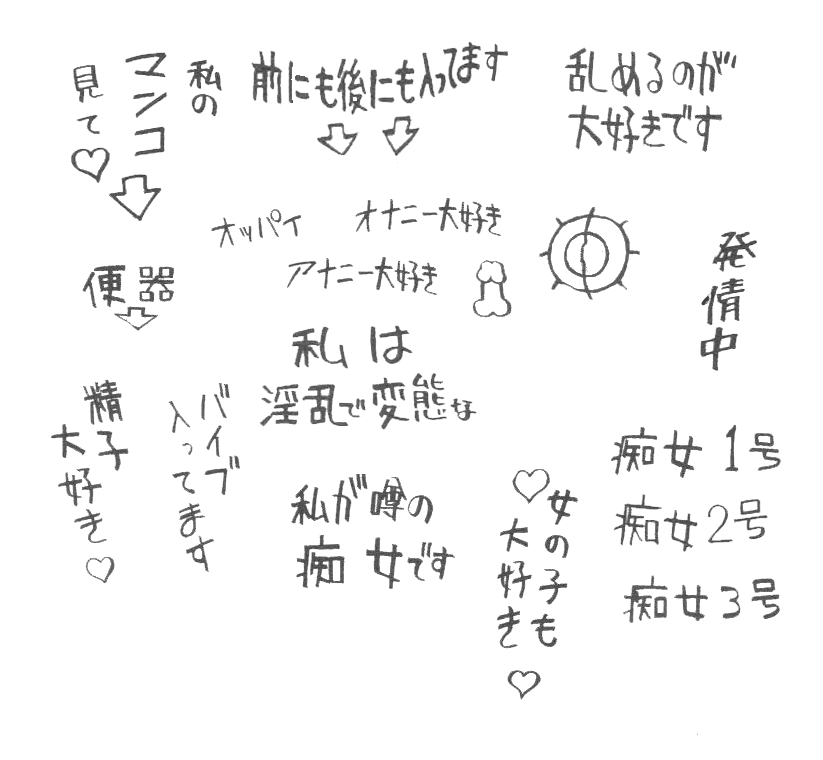 私の
マンコ
見て♡
前にも後にも入ってます
乱めるのが
大好きです
オッパイ
オナニー大好き
アナニー大好き
発情中
便器
私は
淫乱で変態な
精子
大好き♡
バイブ
入ってます
私が噂の
痴女です
♡女の子も
大好き♡
痴女1号
痴女2号
痴女3号